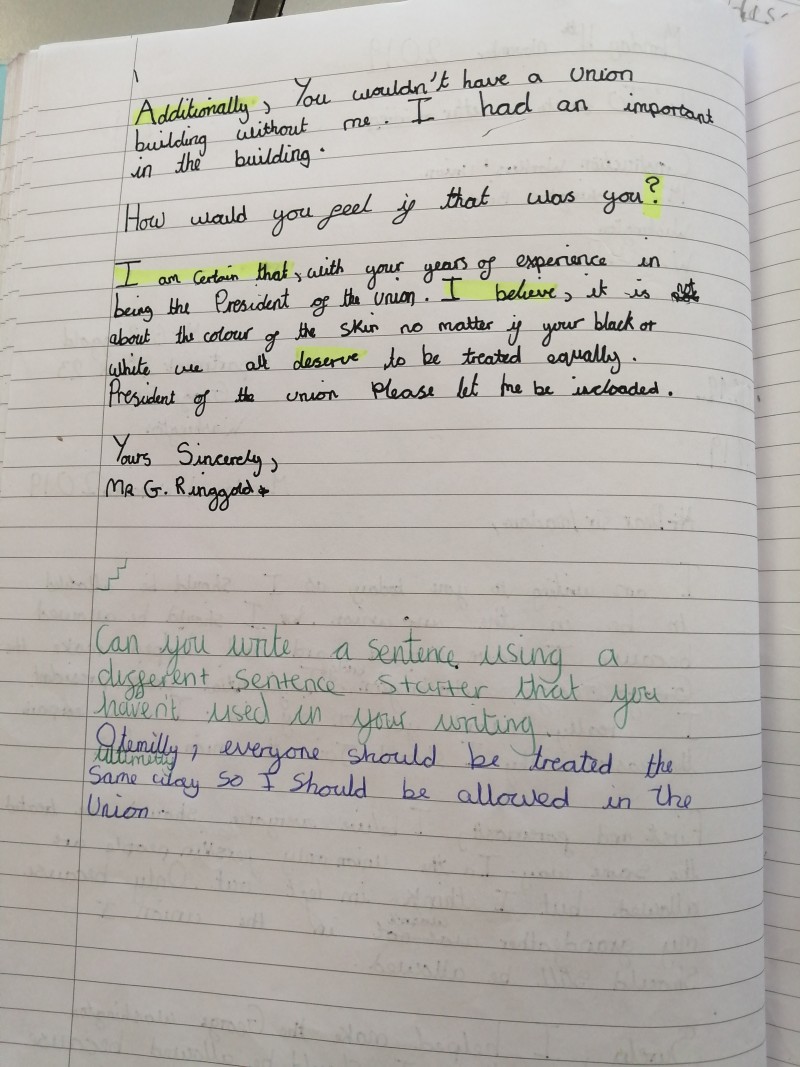 Additionally, You wouldn't have a union
building without me. I had an important
in the building.
How would you feel if that was you?
I am certain that, with your years of experience in
being the President of the union. I believe, it is not
about the colour of the skin no matter if your black or
white we all deserve to be treated equally.
President of the union please let me be incloaded.
Yours Sincerely,
MR G. Ringgold
Can you write a sentence using a
different sentence starter that you
haven't used in your writing.
Otemilly, everyone should be treated the
ultimetly
Same way so I should be allowed in the
Union.